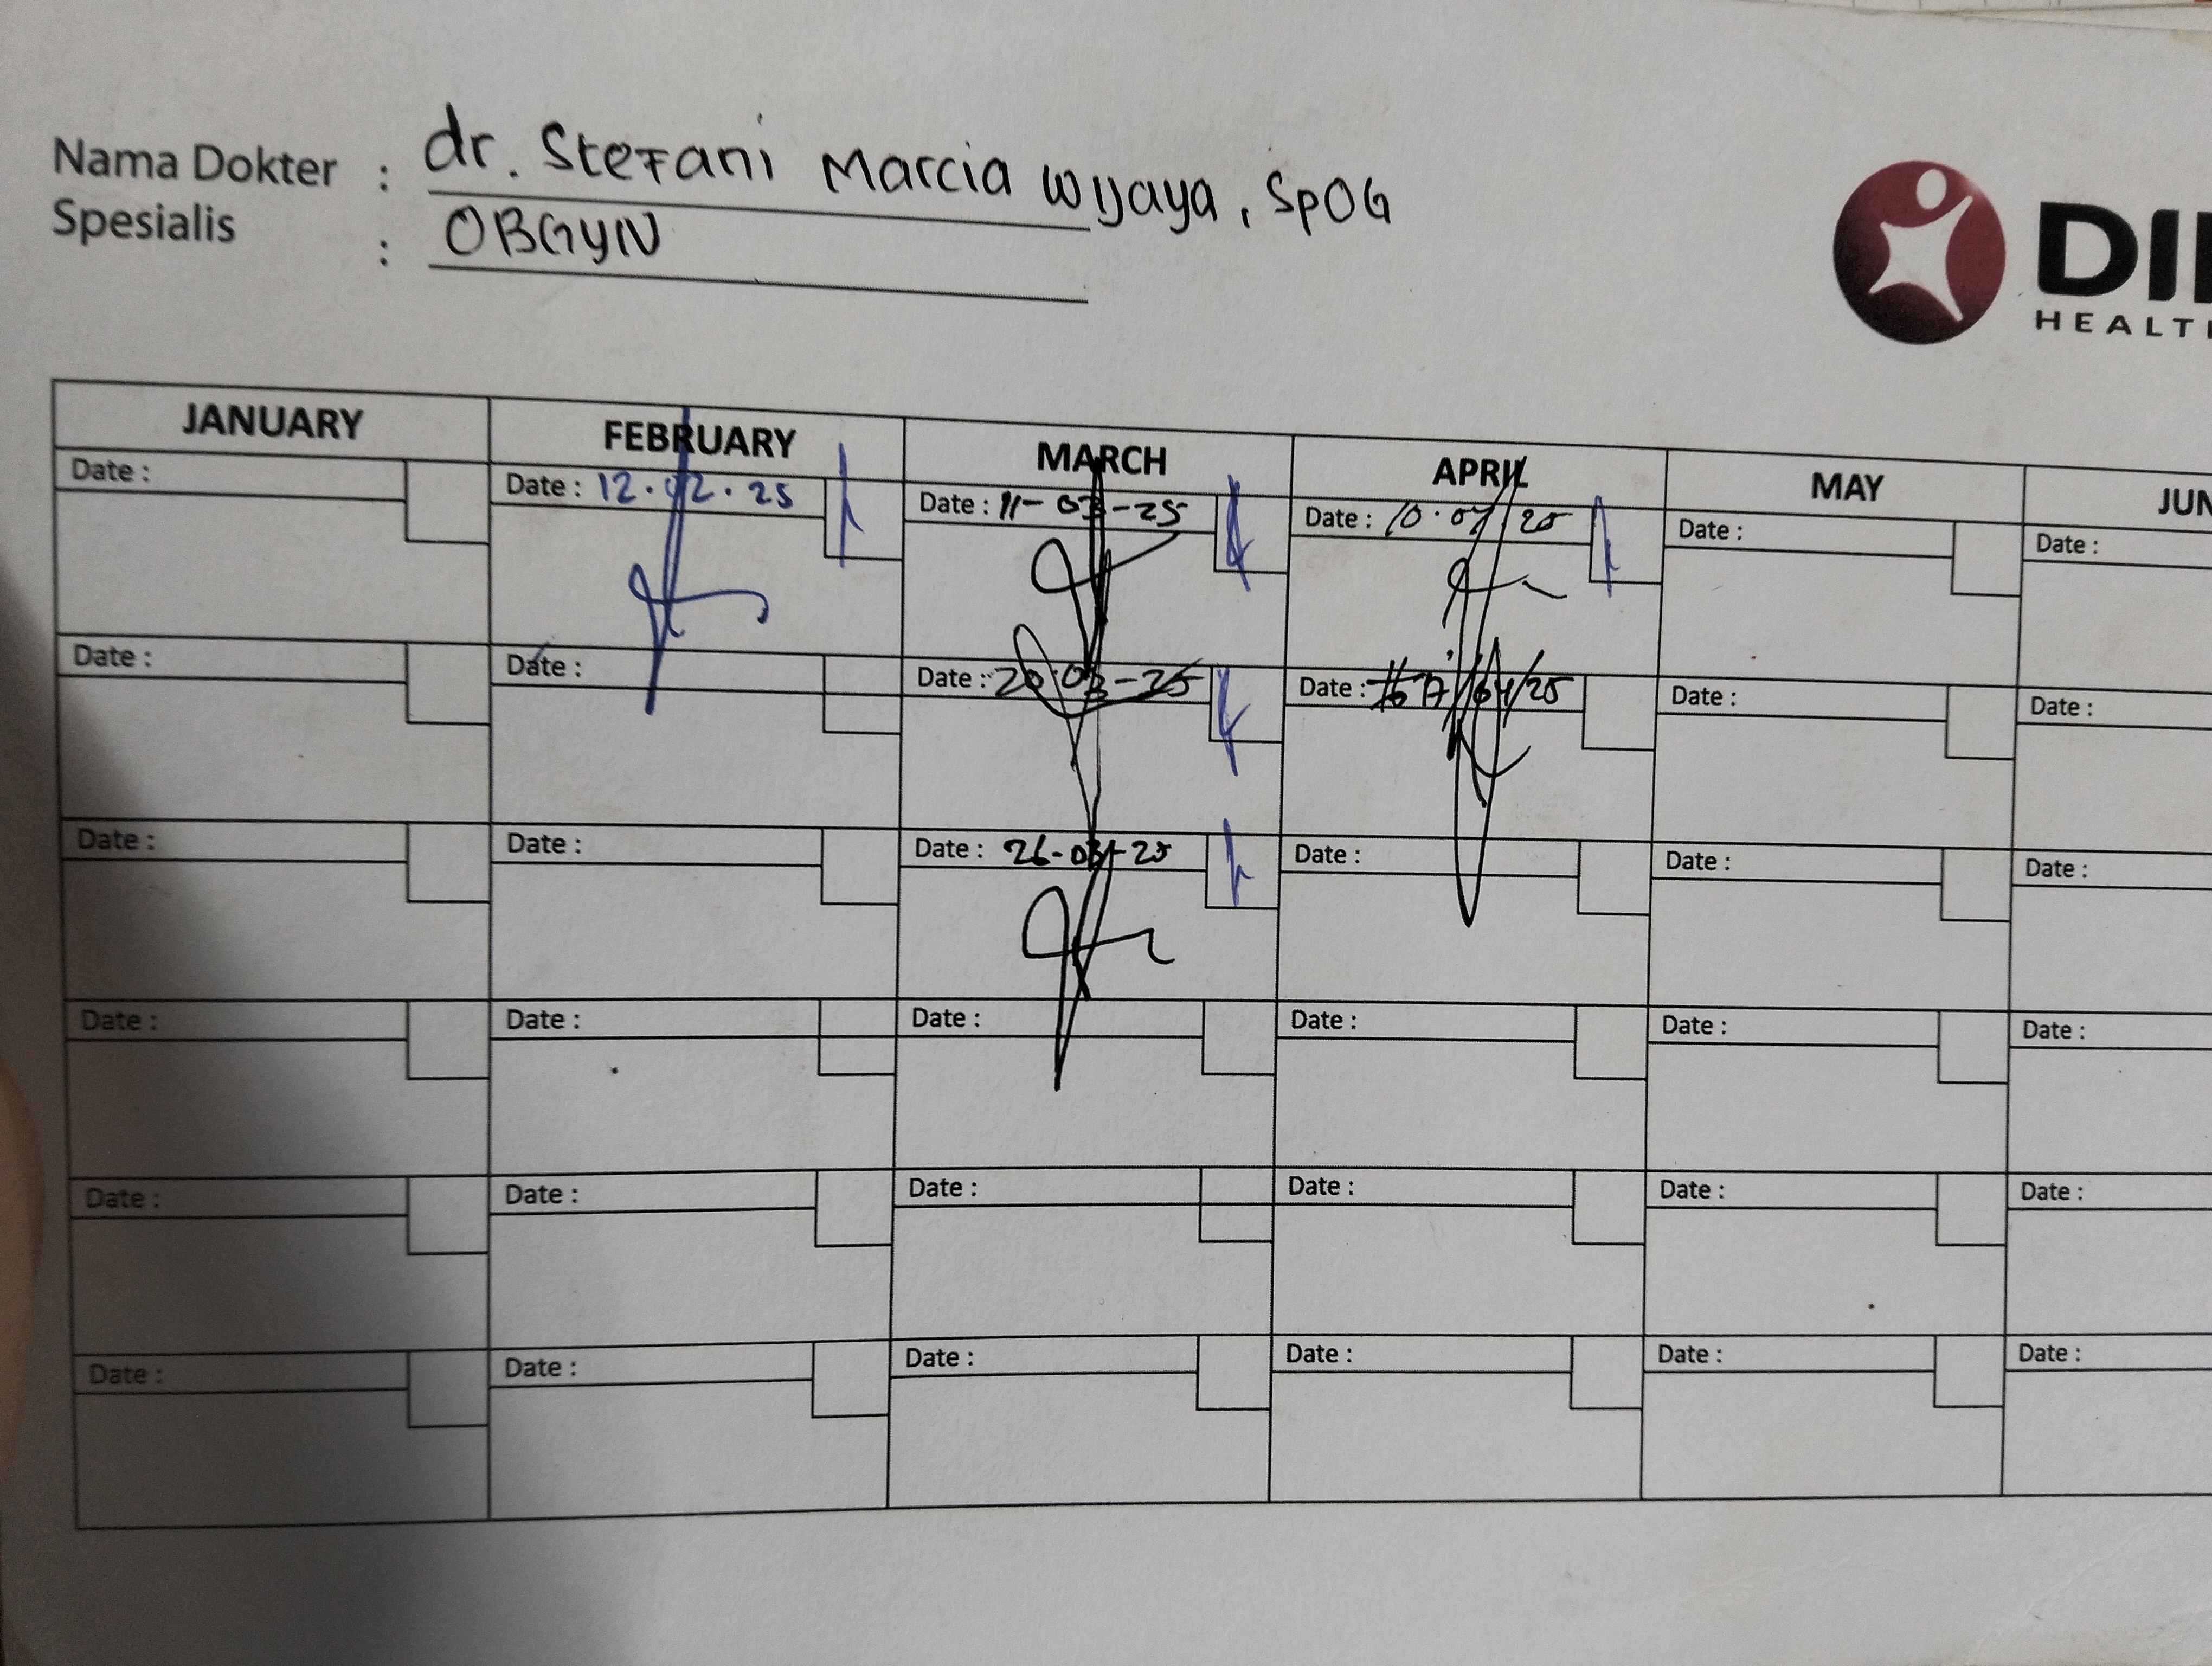 Nama Dokter : dr. Stefani Marcia Wijaya, SpOG
Spesialis : OBGYN
DI
HEALTH
JANUARY FEBRUARY MARCH APRIL MAY JUN
Date : Date : 12.02.25 Date : 11-03-25 Date : 10.04/25 Date : Date :
Date : Date : Date : 20-03-25 Date : 17/04/25 Date : Date :
Date : Date : Date : 26-03-25 Date : Date : Date :
Date : Date : Date : Date : Date : Date :
Date : Date : Date : Date : Date : Date :
Date : Date : Date : Date : Date : Date :